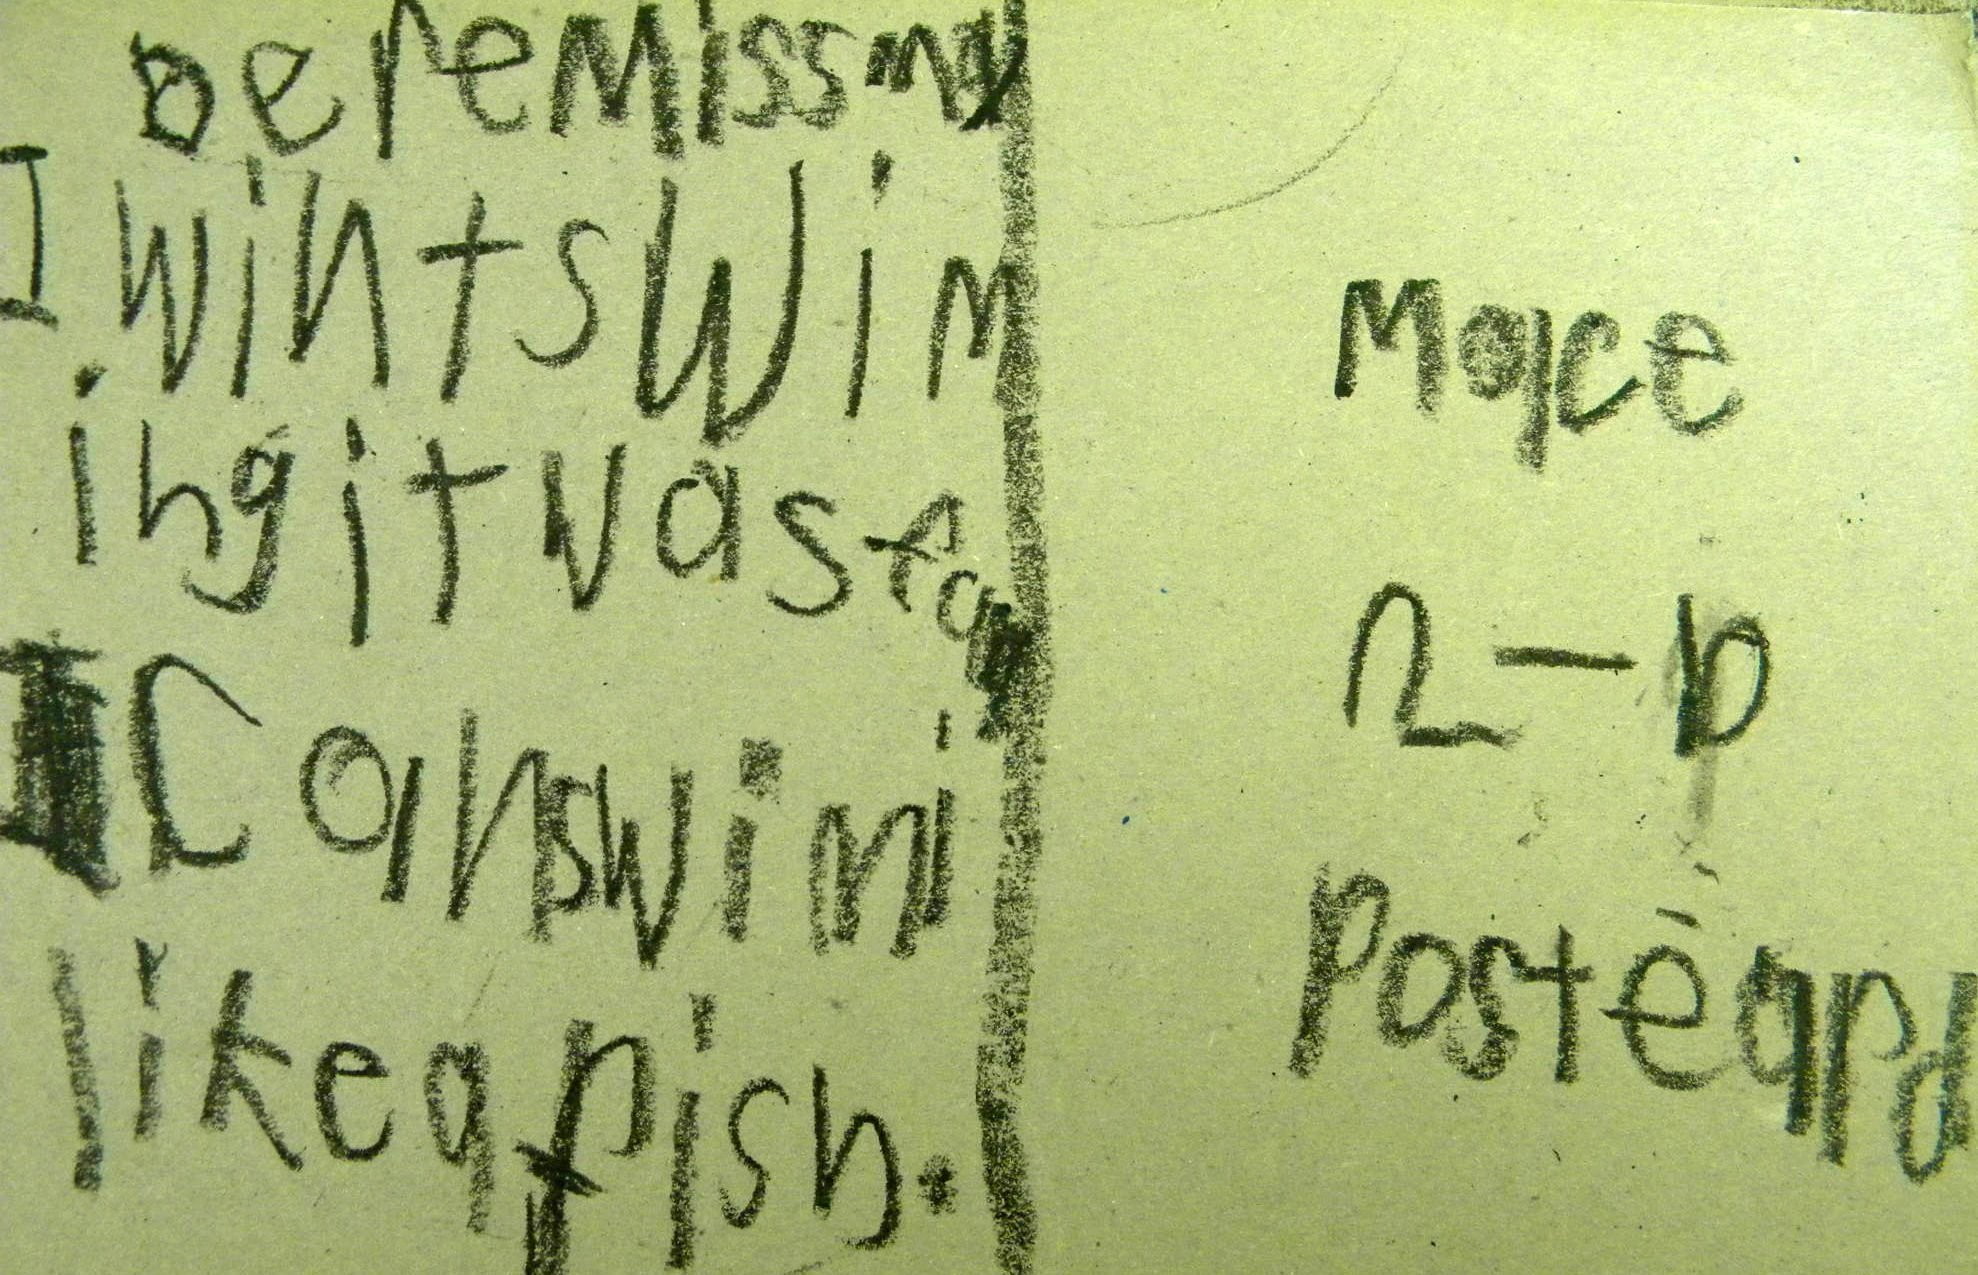 Dere Miss may
I wint swim
ing it vas fan
I can swim
like a fish.
Mace
2-b
Posterard